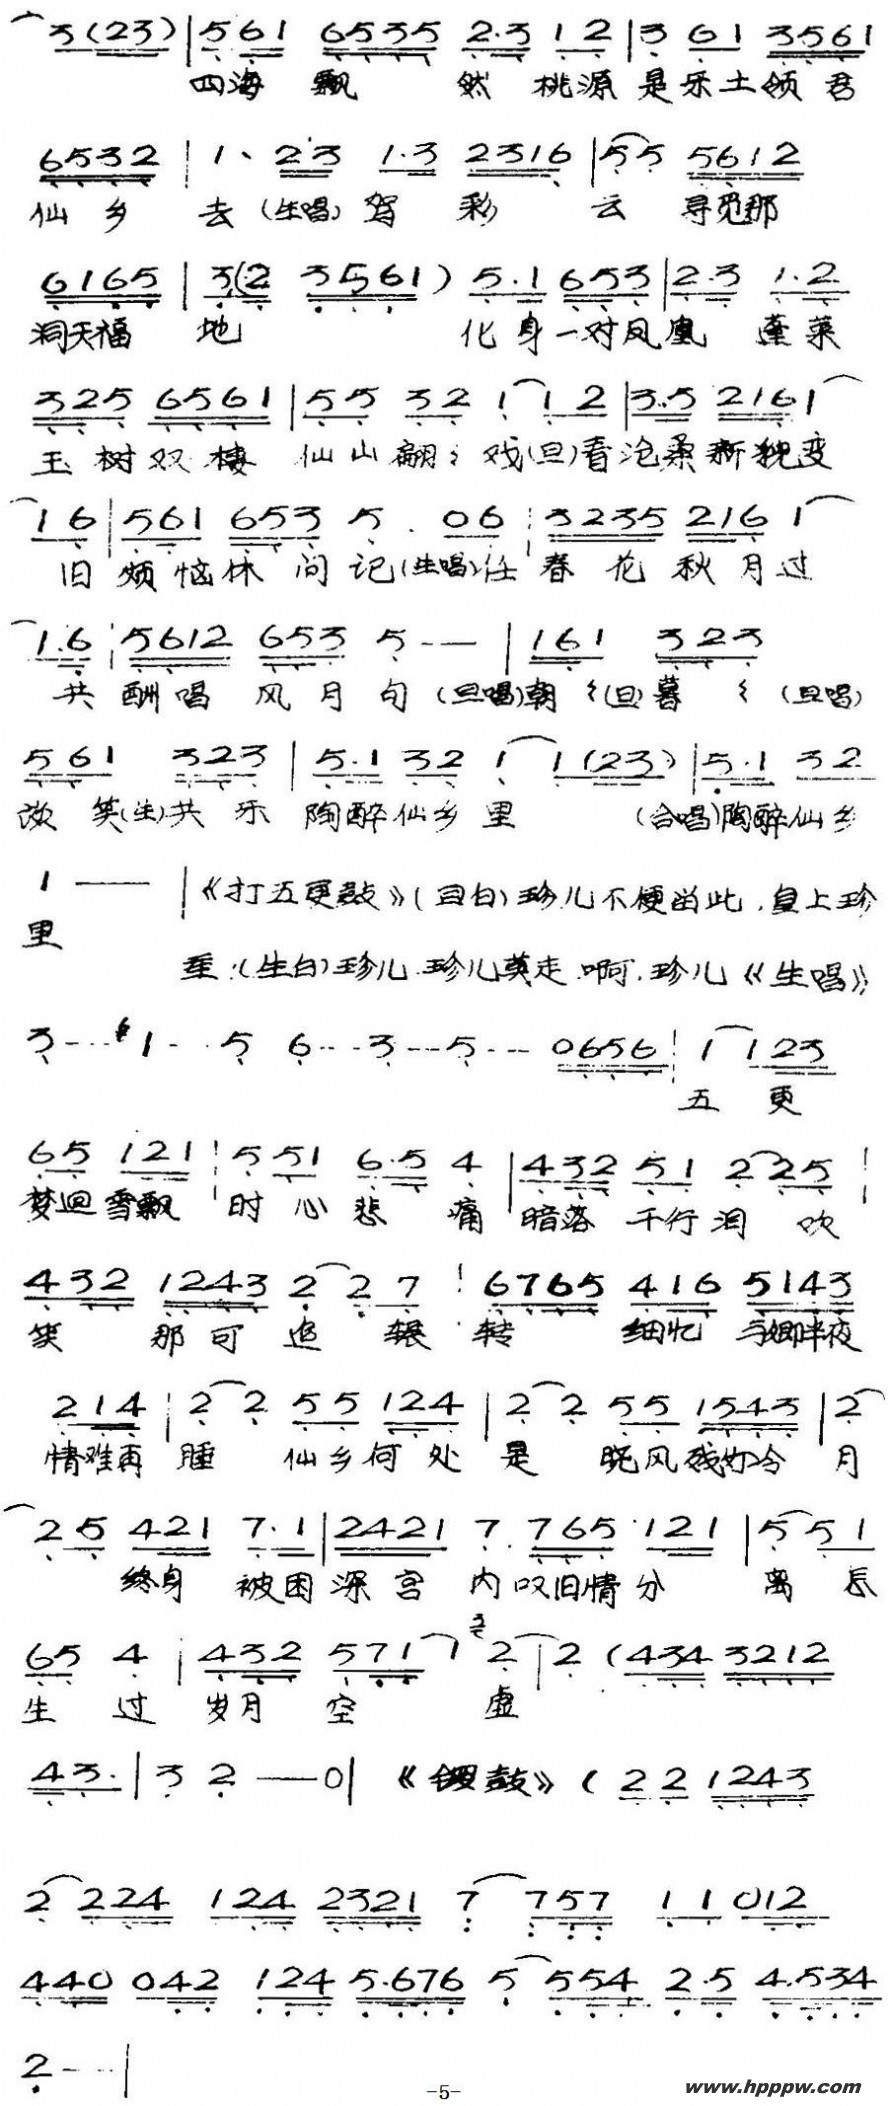 3(23) | 561 6535 2·3 12 | 3 61 3561
四海 飘 然 桃源 是乐土领君
6532 | 1、 23 1·3 2316 | 55 5612
仙乡 去(生唱)驾 彩 云 寻觅那
6165 | 3(2 3561) 5·1 653 | 2·3 1·2
洞天福 地 化身一对凤凰 蓬莱
325 6561 | 55 32 1 12 | 3·5 2161
玉树双栖 仙山翩〻戏(旦)看沧桑新貌变
16 | 561 653 5· 06 | 3235 216 1
旧烦恼休问记(生唱)任春花秋月过
1·6 | 5612 653 5-- | 161 323
共酬唱风月句(旦唱)朝〻(旦)暮〻(旦唱)
561 323 | 5·1 32 1 1(23) | 5·1 32
欢笑(生)共乐 陶醉仙乡里 (合唱)陶醉仙乡
1 -- | 《打五更鼓》(旦白)珍儿不便留此,皇上珍
里
重.(生白)珍儿.珍儿莫走.啊.珍儿《生唱》
3--- 1-- 5 6--- 3--- 5--- 0656 | 1 123
五更
65 121 | 5 51 6·5 4 | 432 51 2 25
梦迴雪飘 时心悲痛 暗落千行泪 欢
432 1243 2 2 7 | 6765 416 5143
笑 那可追 辗转 细忆 与卿半夜
214 | 2 2 55 124 | 2 2 55 1543 | 2
情难再 睡 仙乡何处是 晓风残 冷 月
25 421 7·1 | 2421 7· 765 121 | 5 51
终身 被困深宫 内叹旧情分 离 怎
65 4 | 432 571 1 2 | 2 (434 3212
生过 岁月空 虚
43· | 3 2 -- 0 | 《锣鼓》( 22 1243
2 224 124 2321 7 757 11 012
440 042 124 5·676 5 554 2·5 4·534
2-- |
-5-
www.hpppw.com